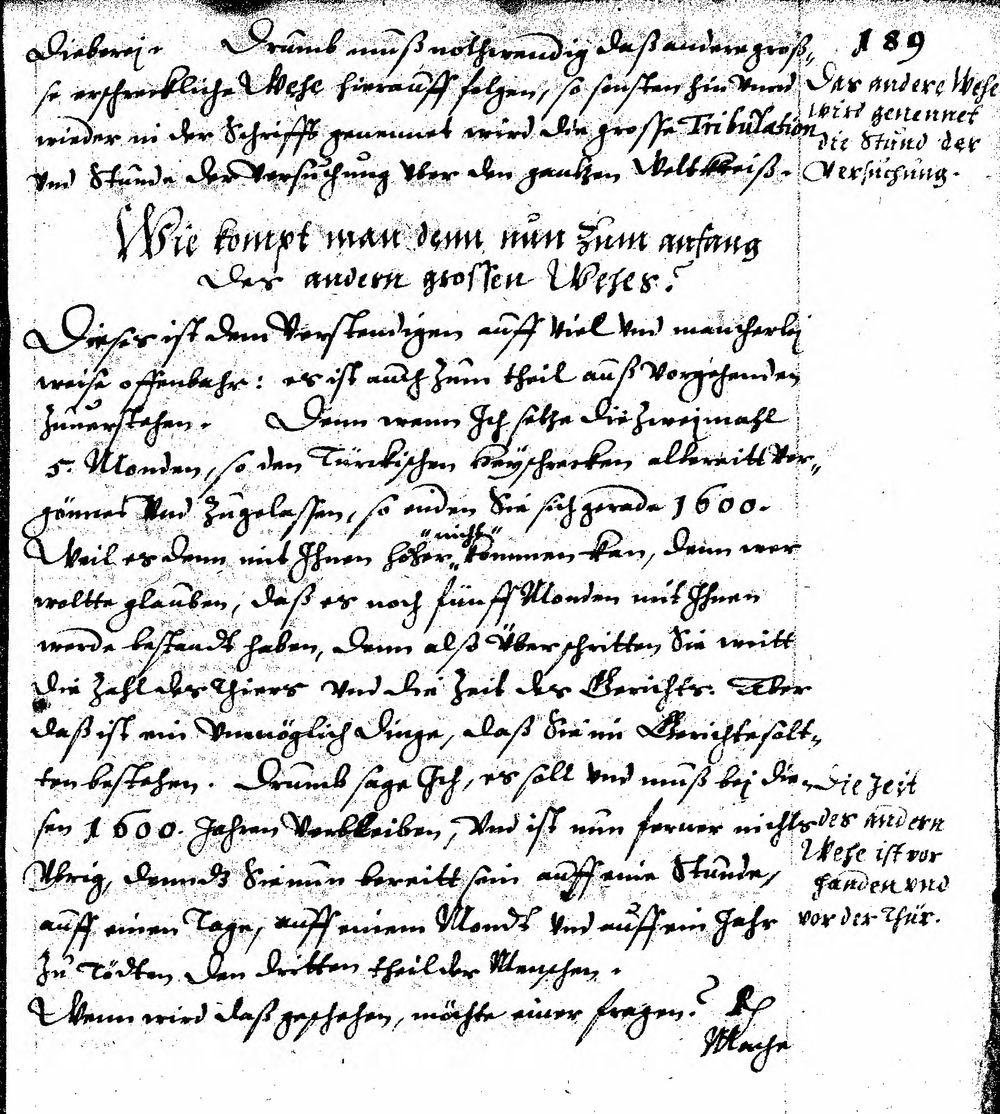 189
Dieberei. Drumb muß nothwendig daß andere gros„
se erschreckliche Wehe hierauff folgen, so sonsten hin vnnd
wieder in der Schrifft genennet wird die grosse Tribulation
vnd Stunde der Versuchung vber den gantzen Weltkreiß.
Das andere Wehe
wird genennet
die Stund der
Versuchung.
Wie kompt man denn nun zum anfang
des andern grossen Wehes?
Dieses ist dem Verstendigen auff viel vnd mancherlej
weise offenbahr: es ist auch zum theil auß vorgehenden
zuuerstehen. Denn wenn Ich setze die zweymahl
5. Monden, so den Türckischen Heyschrecken allereitt ver„
gönnet vnd zugelassen, so enden Sie sich gerade 1600.
Weil es denn mit Ihnen höher „nicht“ kommen kan, denn wer
woltte glauben, daß es noch fünff Monden mit Ihnen
werde bestandt haben, denn alß überschritten Sie weitt
die Zahl des Thiers vnd die Zeit des Gerichts. Aber
daß ist ein vnmöglich Dinge, daß Sie im Gerichte solt„
ten bestehen. Drumb sage Ich, es soll vnd muß bej die„
sen 1600. Jahren verbleiben, vnd ist nun ferner nichts
vbrig, denn dz Sie nun bereitt sein auff eine Stunde,
auff einen Tage, auff einem Mondt vnd auff ein Jahr
zu Tödten den dritten theil der Menschen.
Die Zeit
des andern
Wehe ist vor
handen vnd
vor der Thür.
Wenn wird daß geschehen, möchte einer fragen?
Mache